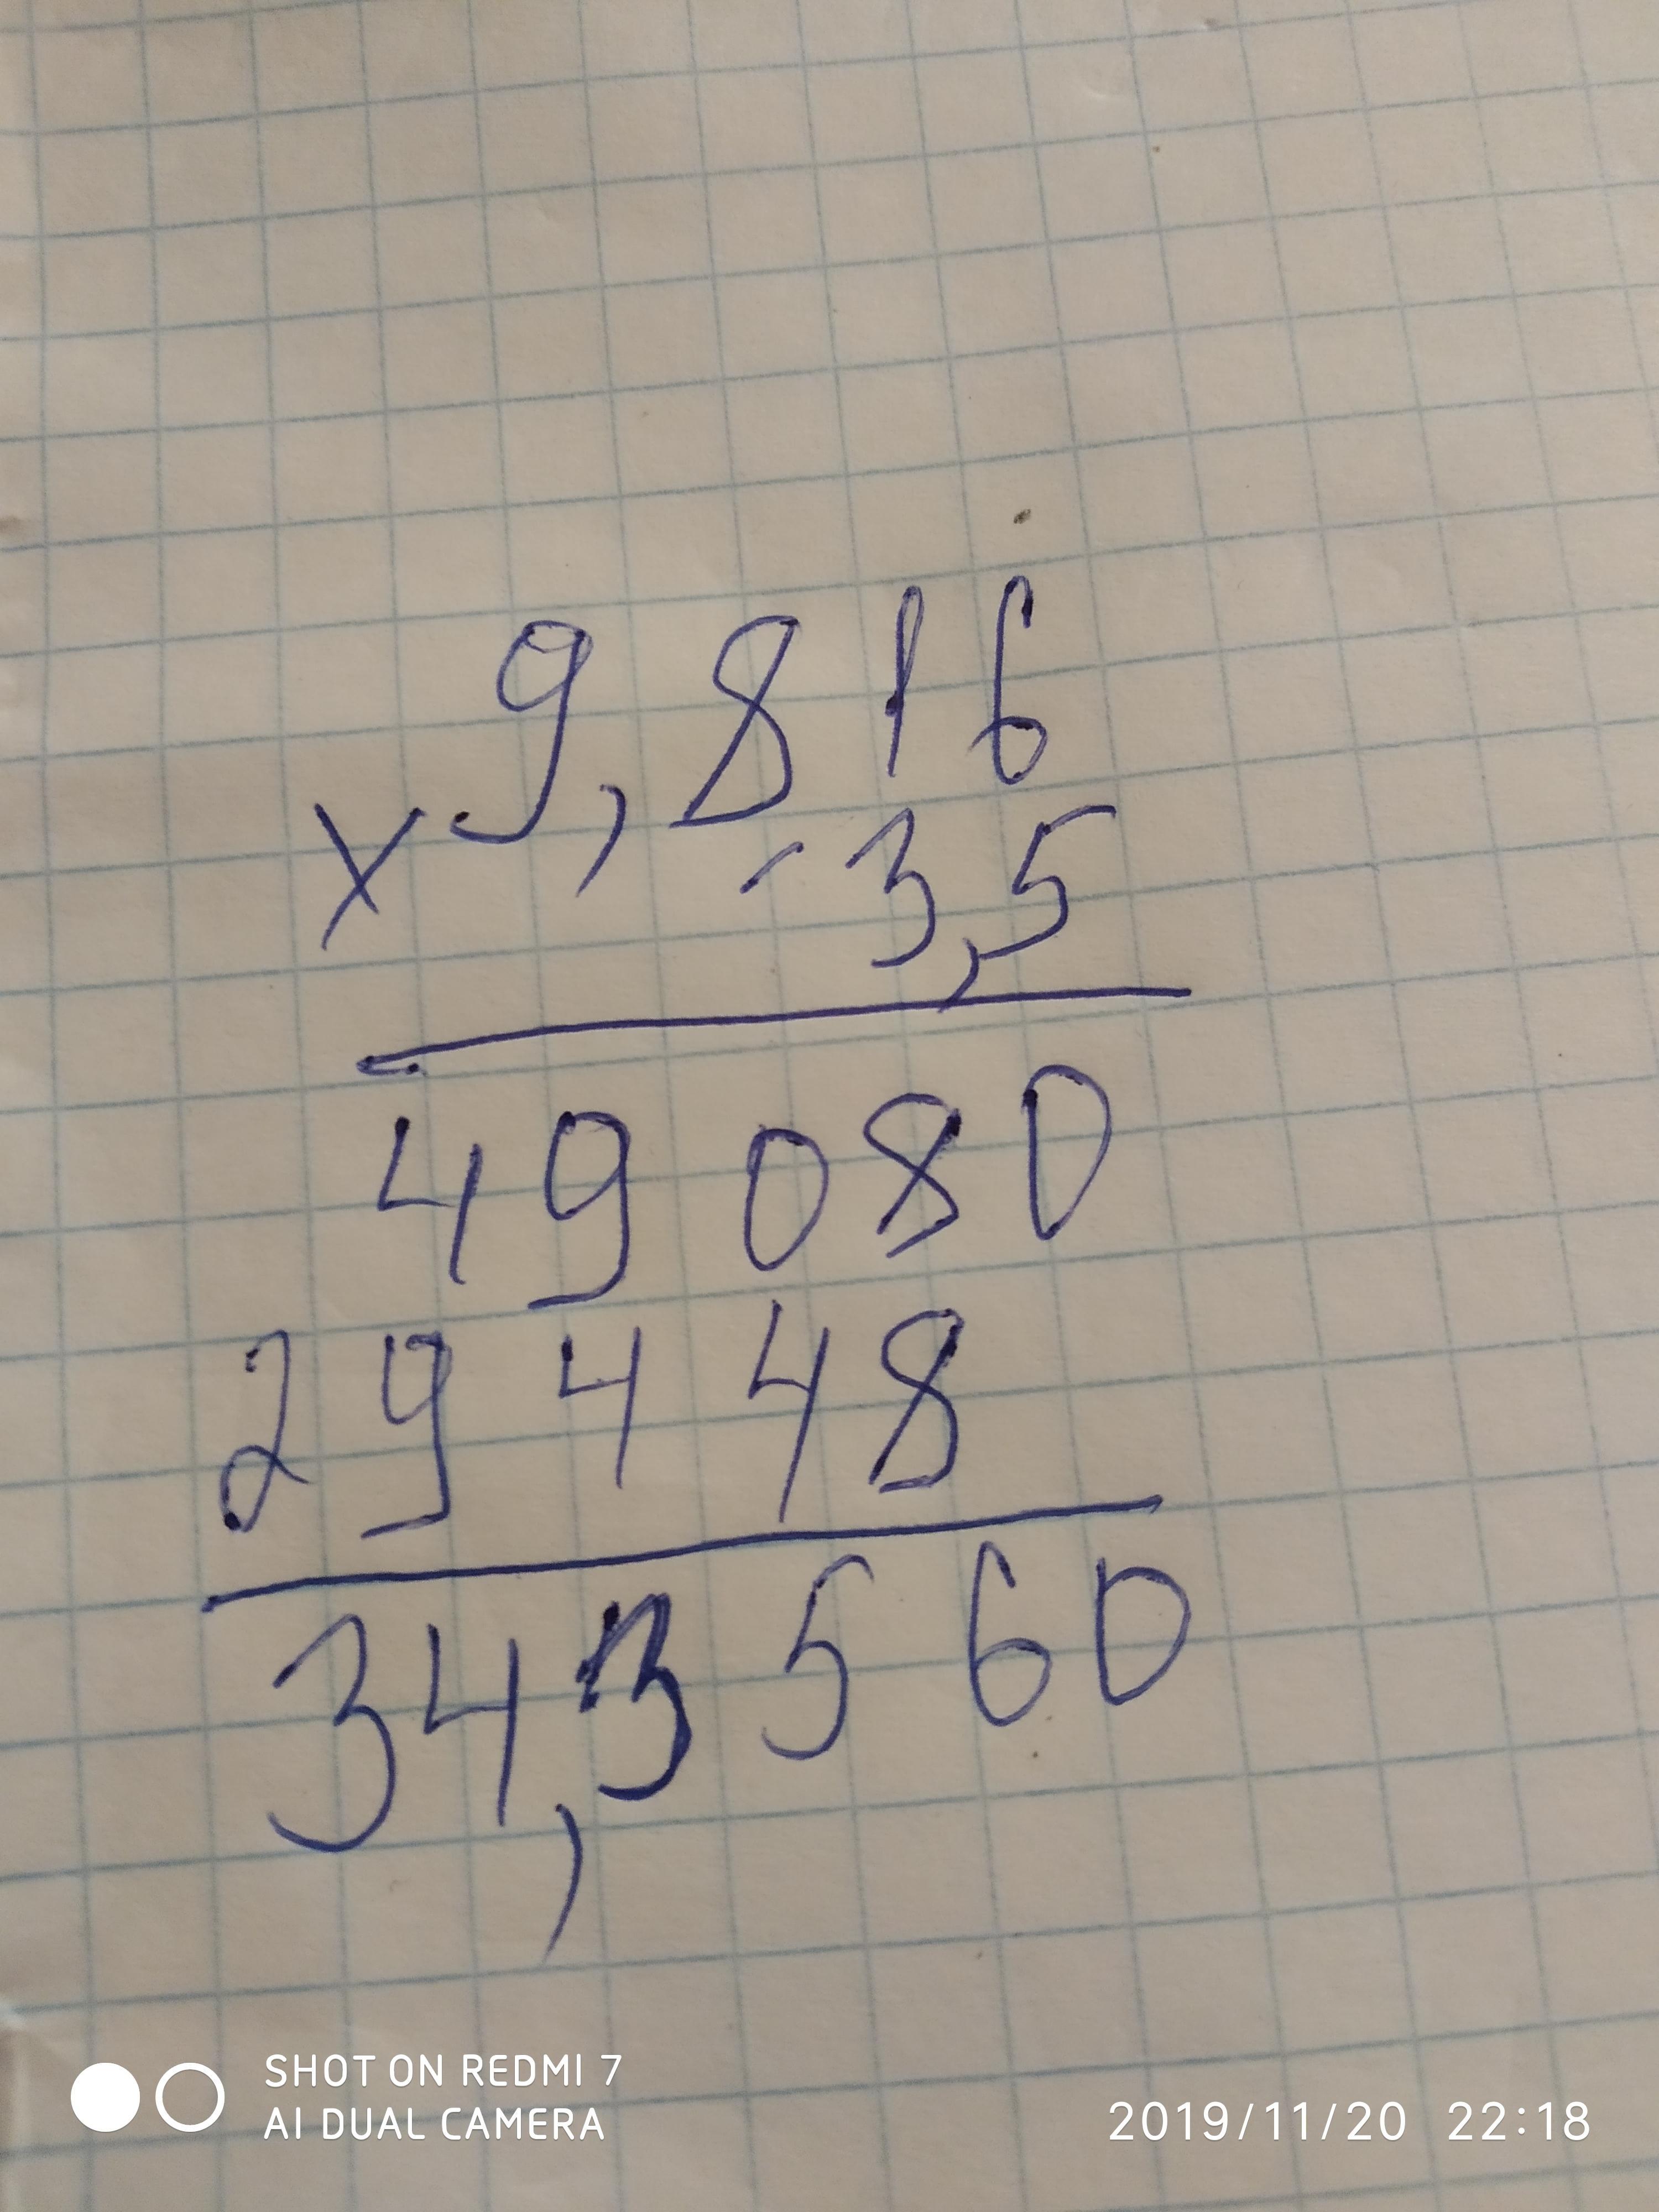 9,816
× -3,5
49080
29448
34,3560
SHOT ON REDMI 7
AI DUAL CAMERA
2019/11/20 22:18